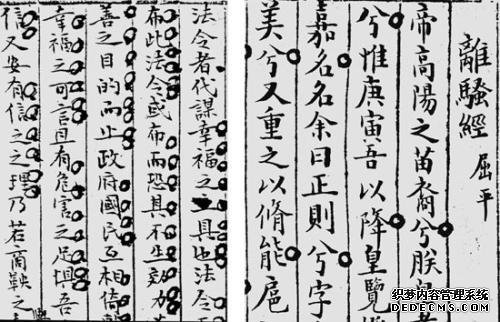 離騷經 屈平
帝高陽之苗裔兮朕皇
兮惟庚寅吾以降皇覽
嘉名名余曰正則兮字
美兮又重之以脩能扈
法令者代謀幸福之具也法令
布此法令或布而恐其不生效力
善之目的而止政府國民互相倚
幸福之可言且有危害之足懼吾
信又安有信之之理乃若商鞅之
织梦内容管理系统
DEDECMS.COM